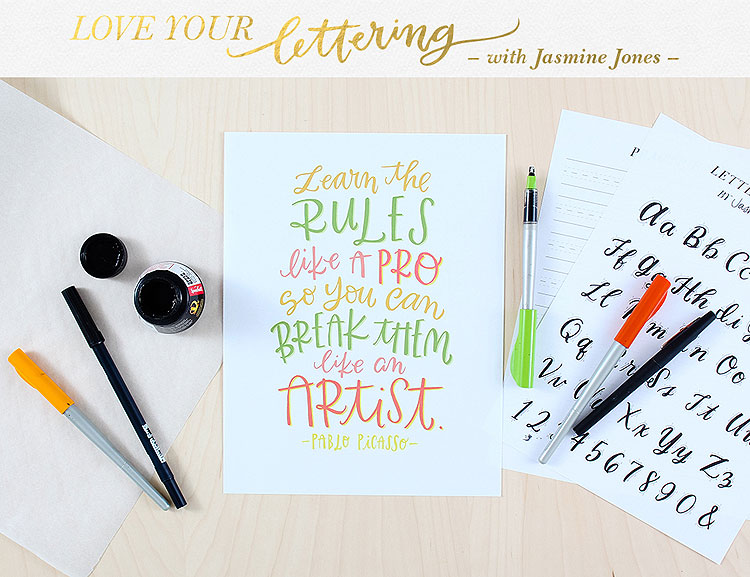 LOVE YOUR lettering
– with Jasmine Jones –
Learn the
RULES
like A PRO
so you can
BREAK THEM
like an
ARTIST.
–PABLO PICASSO–
LETTE
BY Jas
Aa Bb Cc
Ff Gg Hh
Ll
Qq
Ss Tt U
Vv
Xx Yy Zz
1 2
4 5 6 7 8 9 0 &